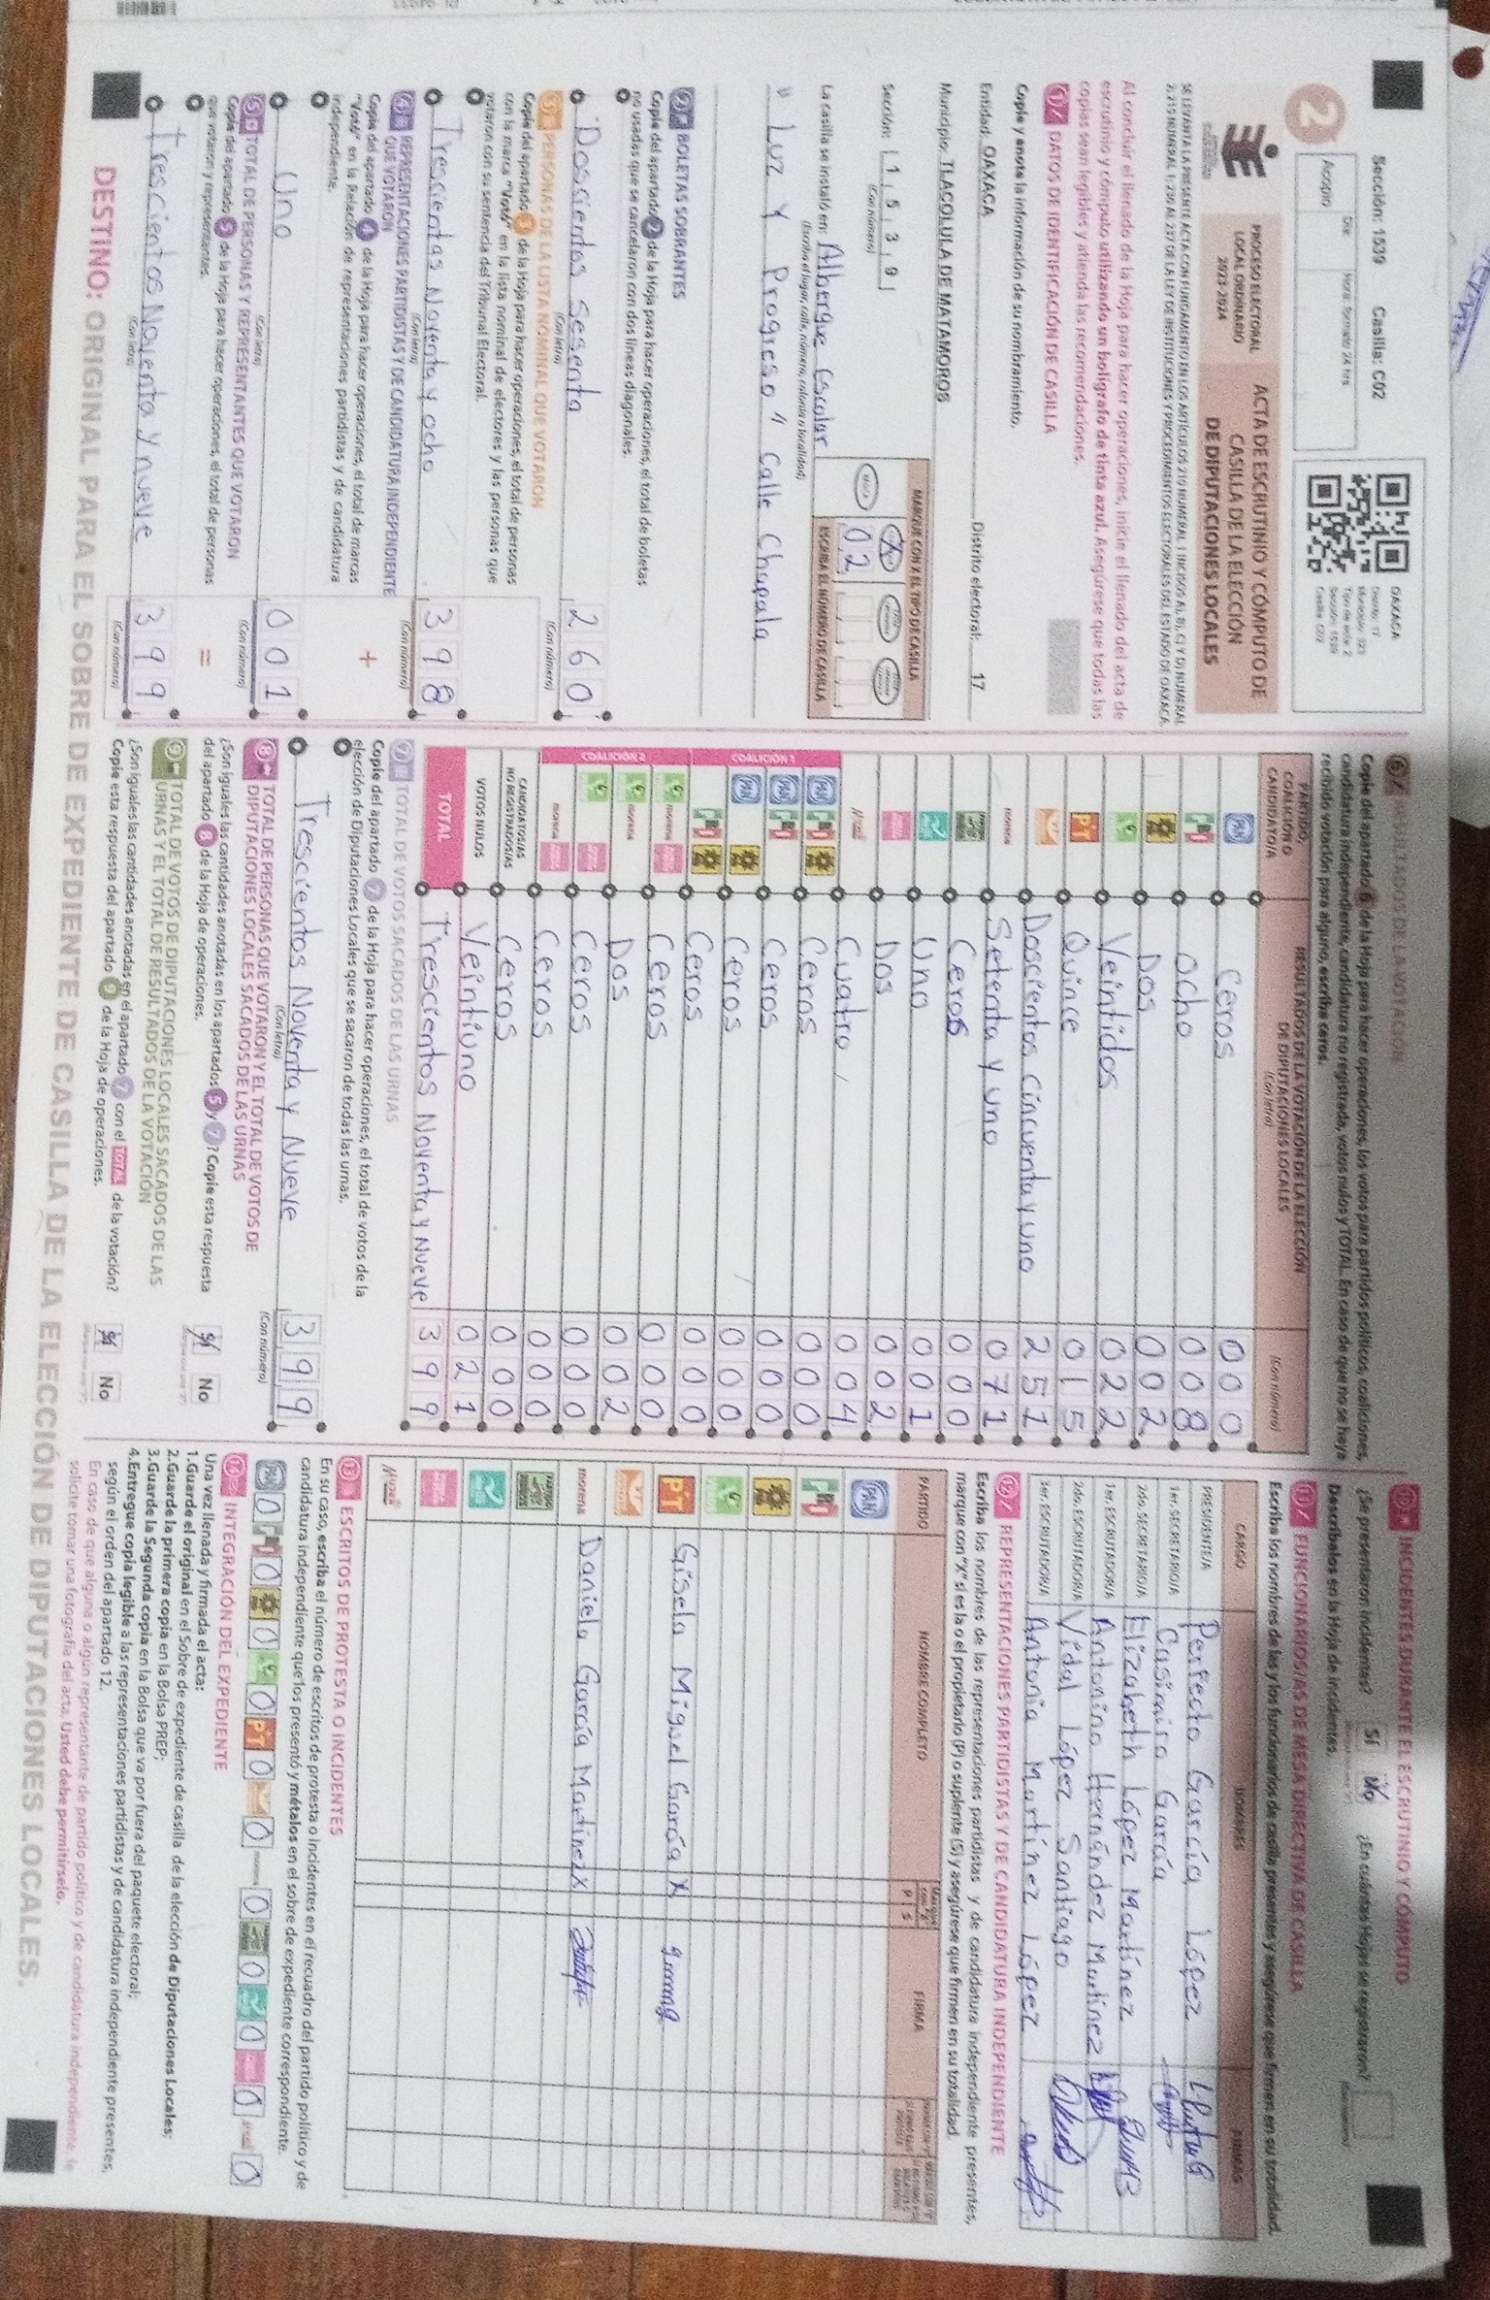 Sección: 1539 Casilla: C02
Acopio
Día
Hora: formato 24 hrs.
OAXACA
2
PROCESO ELECTORAL
LOCAL ORDINARIO
2023-2024
ACTA DE ESCRUTINIO Y CÓMPUTO DE
CASILLA DE LA ELECCIÓN
DE DIPUTACIONES LOCALES
Al concluir el llenado de la Hoja para hacer operaciones, inicie el llenado del acta de
escrutinio y cómputo utilizando un bolígrafo de tinta azul. Asegúrese que todas las
copias sean legibles y atienda las recomendaciones.
1 DATOS DE IDENTIFICACIÓN DE CASILLA
Copie y anote la información de su nombramiento.
Entidad: OAXACA Distrito electoral: 17
Municipio: TLACOLULA DE MATAMOROS
Sección: 1 5 3 9
(Con número)
MARQUE CON X EL TIPO DE CASILLA
ESCRIBA EL NÚMERO DE CASILLA
02
La casilla se instaló en: Albergue Escolar
(Escriba el lugar, calle, número, colonia o localidad)
"Luz y Progreso" Calle Chapala
2 BOLETAS SOBRANTES
Copie del apartado 2 de la Hoja para hacer operaciones, el total de boletas
no usadas que se cancelaron con dos líneas diagonales.
Doscientos Sesenta 260
(Con letra) (Con número)
3 PERSONAS DE LA LISTA NOMINAL QUE VOTARON
Copie del apartado 3 de la Hoja para hacer operaciones, el total de personas
con la marca "Votó" en la lista nominal de electores y las personas que
votaron con su sentencia del Tribunal Electoral.
Trescientas Noventa y ocho 398
(Con letra) (Con número)
4 REPRESENTACIONES PARTIDISTAS Y DE CANDIDATURA INDEPENDIENTE
QUE VOTARON
Copie del apartado 4 de la Hoja para hacer operaciones, el total de marcas
"Votó" en la Relación de representaciones partidistas y de candidatura
independiente.
+
Uno 001
(Con letra) (Con número)
5 TOTAL DE PERSONAS Y REPRESENTANTES QUE VOTARON
Copie del apartado 5 de la Hoja para hacer operaciones, el total de personas
que votaron y representantes.
=
Trescientos Noventa y nueve 399
(Con letra) (Con número)
6 RESULTADOS DE LA VOTACIÓN
Copie del apartado 6 de la Hoja para hacer operaciones, los votos para partidos políticos, coaliciones,
candidatura independiente, candidatura no registrada, votos nulos y TOTAL. En caso de que no se haya
recibido votación para alguno, escriba ceros.
PARTIDO,
COALICIÓN O
CANDIDATO/A
RESULTADOS DE LA VOTACIÓN DE LA ELECCIÓN
DE DIPUTACIONES LOCALES
(Con letra) (Con número)
PAN Ceros 000
PRI Ocho 008
Dos 002
Veintidos 022
PT Quince 015
Doscientos Cincuenta y uno 251
morena Setenta y uno 071
Ceros 000
Uno 001
Dos 002
Cuatro 004
COALICIÓN 1
PAN PRI Ceros 000
PAN PRI Ceros 000
PAN Ceros 000
PRI Ceros 000
COALICIÓN 2
morena Ceros 000
morena Dos 002
Ceros 000
morena Ceros 000
CANDIDATOS/AS
NO REGISTRADOS/AS Ceros 000
VOTOS NULOS Veintiuno 021
TOTAL Trescientos Noventa y Nueve 399
7 TOTAL DE VOTOS SACADOS DE LAS URNAS
Copie del apartado 7 de la Hoja para hacer operaciones, el total de votos de la
elección de Diputaciones Locales que se sacaron de todas las urnas.
Trescientos Noventa y Nueve 399
(Con letra) (Con número)
8 TOTAL DE PERSONAS QUE VOTARON Y EL TOTAL DE VOTOS DE
DIPUTACIONES LOCALES SACADOS DE LAS URNAS
¿Son iguales las cantidades anotadas en los apartados 5 y 7? Copie esta respuesta
del apartado 8 de la Hoja de operaciones. Sí No
9 TOTAL DE VOTOS DE DIPUTACIONES LOCALES SACADOS DE LAS
URNAS Y EL TOTAL DE RESULTADOS DE LA VOTACIÓN
¿Son iguales las cantidades anotadas en el apartado 7 con el TOTAL de la votación?
Copie esta respuesta del apartado 9 de la Hoja de operaciones. Sí No
10 INCIDENTES DURANTE EL ESCRUTINIO Y CÓMPUTO
¿Se presentaron incidentes? Sí No ¿En cuántas Hojas se registraron?
Descríbalos en la Hoja de incidentes.
11 FUNCIONARIOS/AS DE MESA DIRECTIVA DE CASILLA
Escriba los nombres de las y los funcionarios de casilla presentes y asegúrese que firmen en su totalidad.
CARGO NOMBRES FIRMAS
PRESIDENTE/A Perfecto García López
1er. SECRETARIO/A Casimiro García
2do. SECRETARIO/A Elizabeth López Martínez
1er. ESCRUTADOR/A Antonino Hernández Martínez
2do. ESCRUTADOR/A Vidal López Santiago
3er. ESCRUTADOR/A Antonia Martínez López
12 REPRESENTACIONES PARTIDISTAS Y DE CANDIDATURA INDEPENDIENTE
Escriba los nombres de las representaciones partidistas y de candidatura independiente presentes,
marque con "X" si es la o el propietario (P) o suplente (S) y asegúrese que firmen en su totalidad.
PARTIDO NOMBRE COMPLETO P S FIRMA
PAN
PRI
PT Gisela Miguel García X
morena Daniela García Martínez X
13 ESCRITOS DE PROTESTA O INCIDENTES
En su caso, escriba el número de escritos de protesta o incidentes en el recuadro del partido político y de
candidatura independiente que los presentó y métalos en el sobre de expediente correspondiente.
PAN 0 PRI 0 0 0 PT 0 0 0 0 0 0 0
14 INTEGRACIÓN DEL EXPEDIENTE
Una vez llenada y firmada el acta:
1.Guarde el original en el Sobre de expediente de casilla de la elección de Diputaciones Locales;
2.Guarde la primera copia en la Bolsa PREP;
3.Guarde la Segunda copia en la Bolsa que va por fuera del paquete electoral;
4.Entregue copia legible a las representaciones partidistas y de candidatura independiente presentes,
según el orden del apartado 12.
En caso de que alguna o algún representante de partido político y de candidatura independiente, le
solicite tomar una fotografía del acta, Usted debe permitírselo.
DESTINO: ORIGINAL PARA EL SOBRE DE EXPEDIENTE DE CASILLA DE LA ELECCIÓN DE DIPUTACIONES LOCALES.